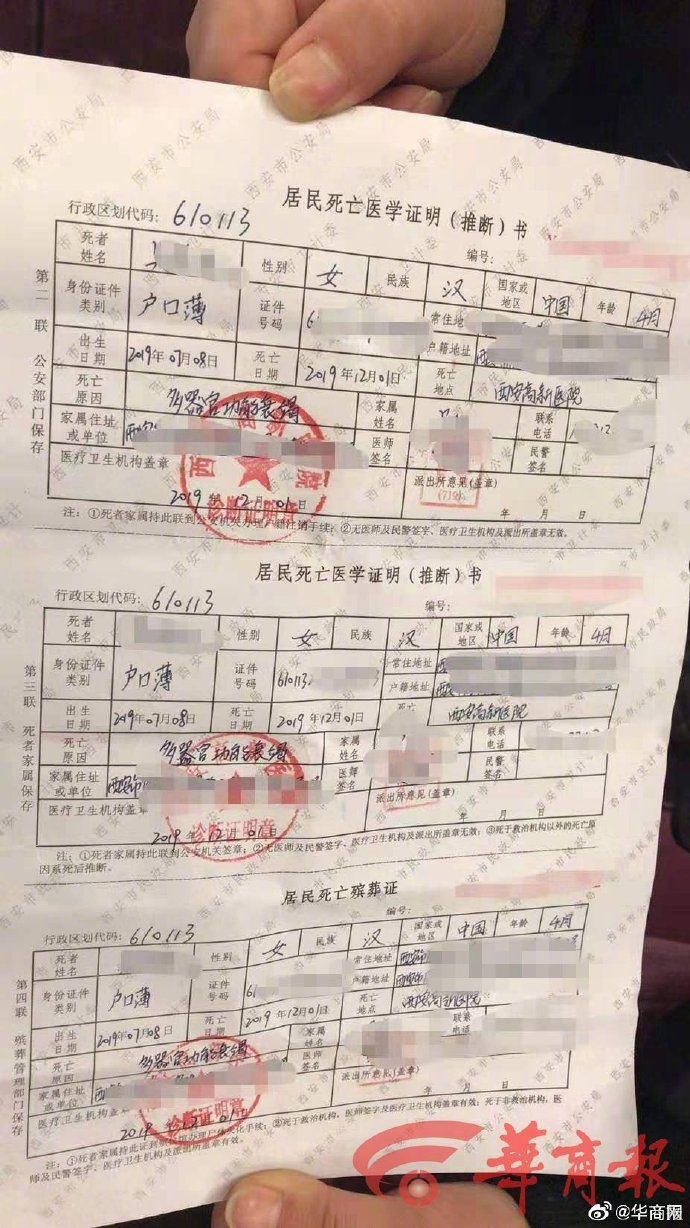 居民死亡医学证明（推断）书
行政区划代码：610113 编号：
第二联 公安部门保存
死者姓名 性别 女 民族 汉 国家或地区 中国 年龄 4月
身份证件类别 户口薄 证件号码 6 常住地 户籍地址 西
出生日期 2019年07月08日 死亡日期 2019年12月01日 死亡地点 西安高新医院
死亡原因 多器官功能衰竭 家属 联系电话
家属住址或单位 医师签名 民警签名
医疗卫生机构盖章 派出所意见（盖章）
诊断证明章
2019年12月01日 年 月 日
注：①死者家属持此联到公安机关办理户籍注销手续；②无医师及民警签字、医疗卫生机构及派出所盖章无效。
居民死亡医学证明（推断）书
行政区划代码：610113 编号：
第三联 死者家属保存
死者姓名 性别 女 民族 汉 国家或地区 中国 年龄 4月
身份证件类别 户口薄 证件号码 610113 常住地址 户籍地址
出生日期 2019年07月08日 死亡日期 2019年12月01日 西安高新医院
死亡原因 多器官功能衰竭 家属 联系电话
家属住址或单位 西安市 医师签名 民警签名
医疗卫生机构盖章 派出所意见（盖章）
诊断证明章
2019年12月01日 年 月 日
注：①死者家属持此联到公安机关签章；②无医师及民警签字、医疗卫生机构及派出所盖章无效；③死于救治机构以外的死亡原因系死后推断。
居民死亡殡葬证
行政区划代码：610113 编号：
第四联 殡葬管理部门保存
死者姓名 性别 女 民族 汉 国家或地区 中国 年龄 4月
身份证件类别 户口薄 证件号码 61 常住地址 户籍地址
出生日期 2019年07月08日 死亡日期 2019年12月01日 死亡地点 西安高新医院
死亡原因 多器官功能衰竭 家属 联系电话
家属住址或单位 医师签名 民警签名
医疗卫生机构盖章 派出所意见（盖章）
诊断证明章
2019年12月01日 年 月 日
注：①死者家属持此证到 办理尸体火化手续；②死于救治机构，医师签字及医疗卫生机构盖章有效；死于非救治机构，医师及民警签字、医疗卫生机构及派出所盖章有效。
西安市公安局
西安市卫计委
西安市民政局
華商報
@华商网